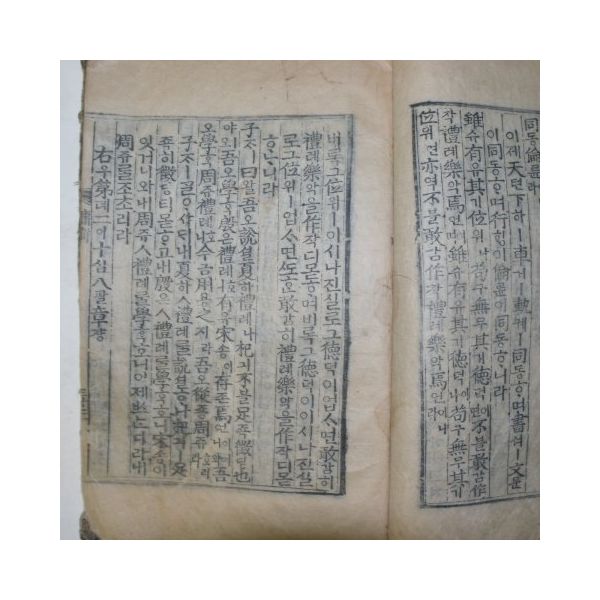 同동倫륜라
이제天텬下하ㅣ車거ㅣ軌궤ㅣ同동ᄒᆞ며書셔ㅣ文문
이同동ᄒᆞ며行ᄒᆡᆼ이倫륜이同동ᄒᆞ니라
雖슈有유其기位위나苟구無무其기德덕이면不블敢감作
작禮례樂악焉언이며雖슈有유其기德덕이나苟구無무其기
位위면亦역不블敢감作작禮례樂악焉언이니라
비록그位위ㅣ이시나진실로그德덕이업스면敢감히
禮례樂악을作작디몯ᄒᆞ며비록그德덕이이시나진실
로그位위ㅣ업스면ᄯᅩ敢감히禮례樂악을作작디몯
ᄒᆞᄂᆞ니라
子ᄌᆞㅣ曰왈吾오說셜夏하禮례나杞긔不블足죡徵딩也
야ㅣ오吾오學ᄒᆞᆨ殷은禮례호니有유宋송이存존焉언이어니와吾
오學ᄒᆞᆨ周쥬禮례호니今금用용之지라吾오從죵周쥬호리라
子ᄌᆞㅣᄀᆞᆯᄋᆞ샤ᄃᆡ내夏하ㅅ禮례ᄅᆞᆯ說셜ᄒᆞ나杞긔ㅣ足
죡히徵딩티몯ᄒᆞ고내殷은ㅅ禮례ᄅᆞᆯ學ᄒᆞᆨ호니宋송이
잇거니와내周쥬ㅅ禮례ᄅᆞᆯ學ᄒᆞᆨ호니이제쓰ᄂᆞᆫ디라내
周쥬ᄅᆞᆯ조초리라
右우第뎨二이十십八팔章쟝